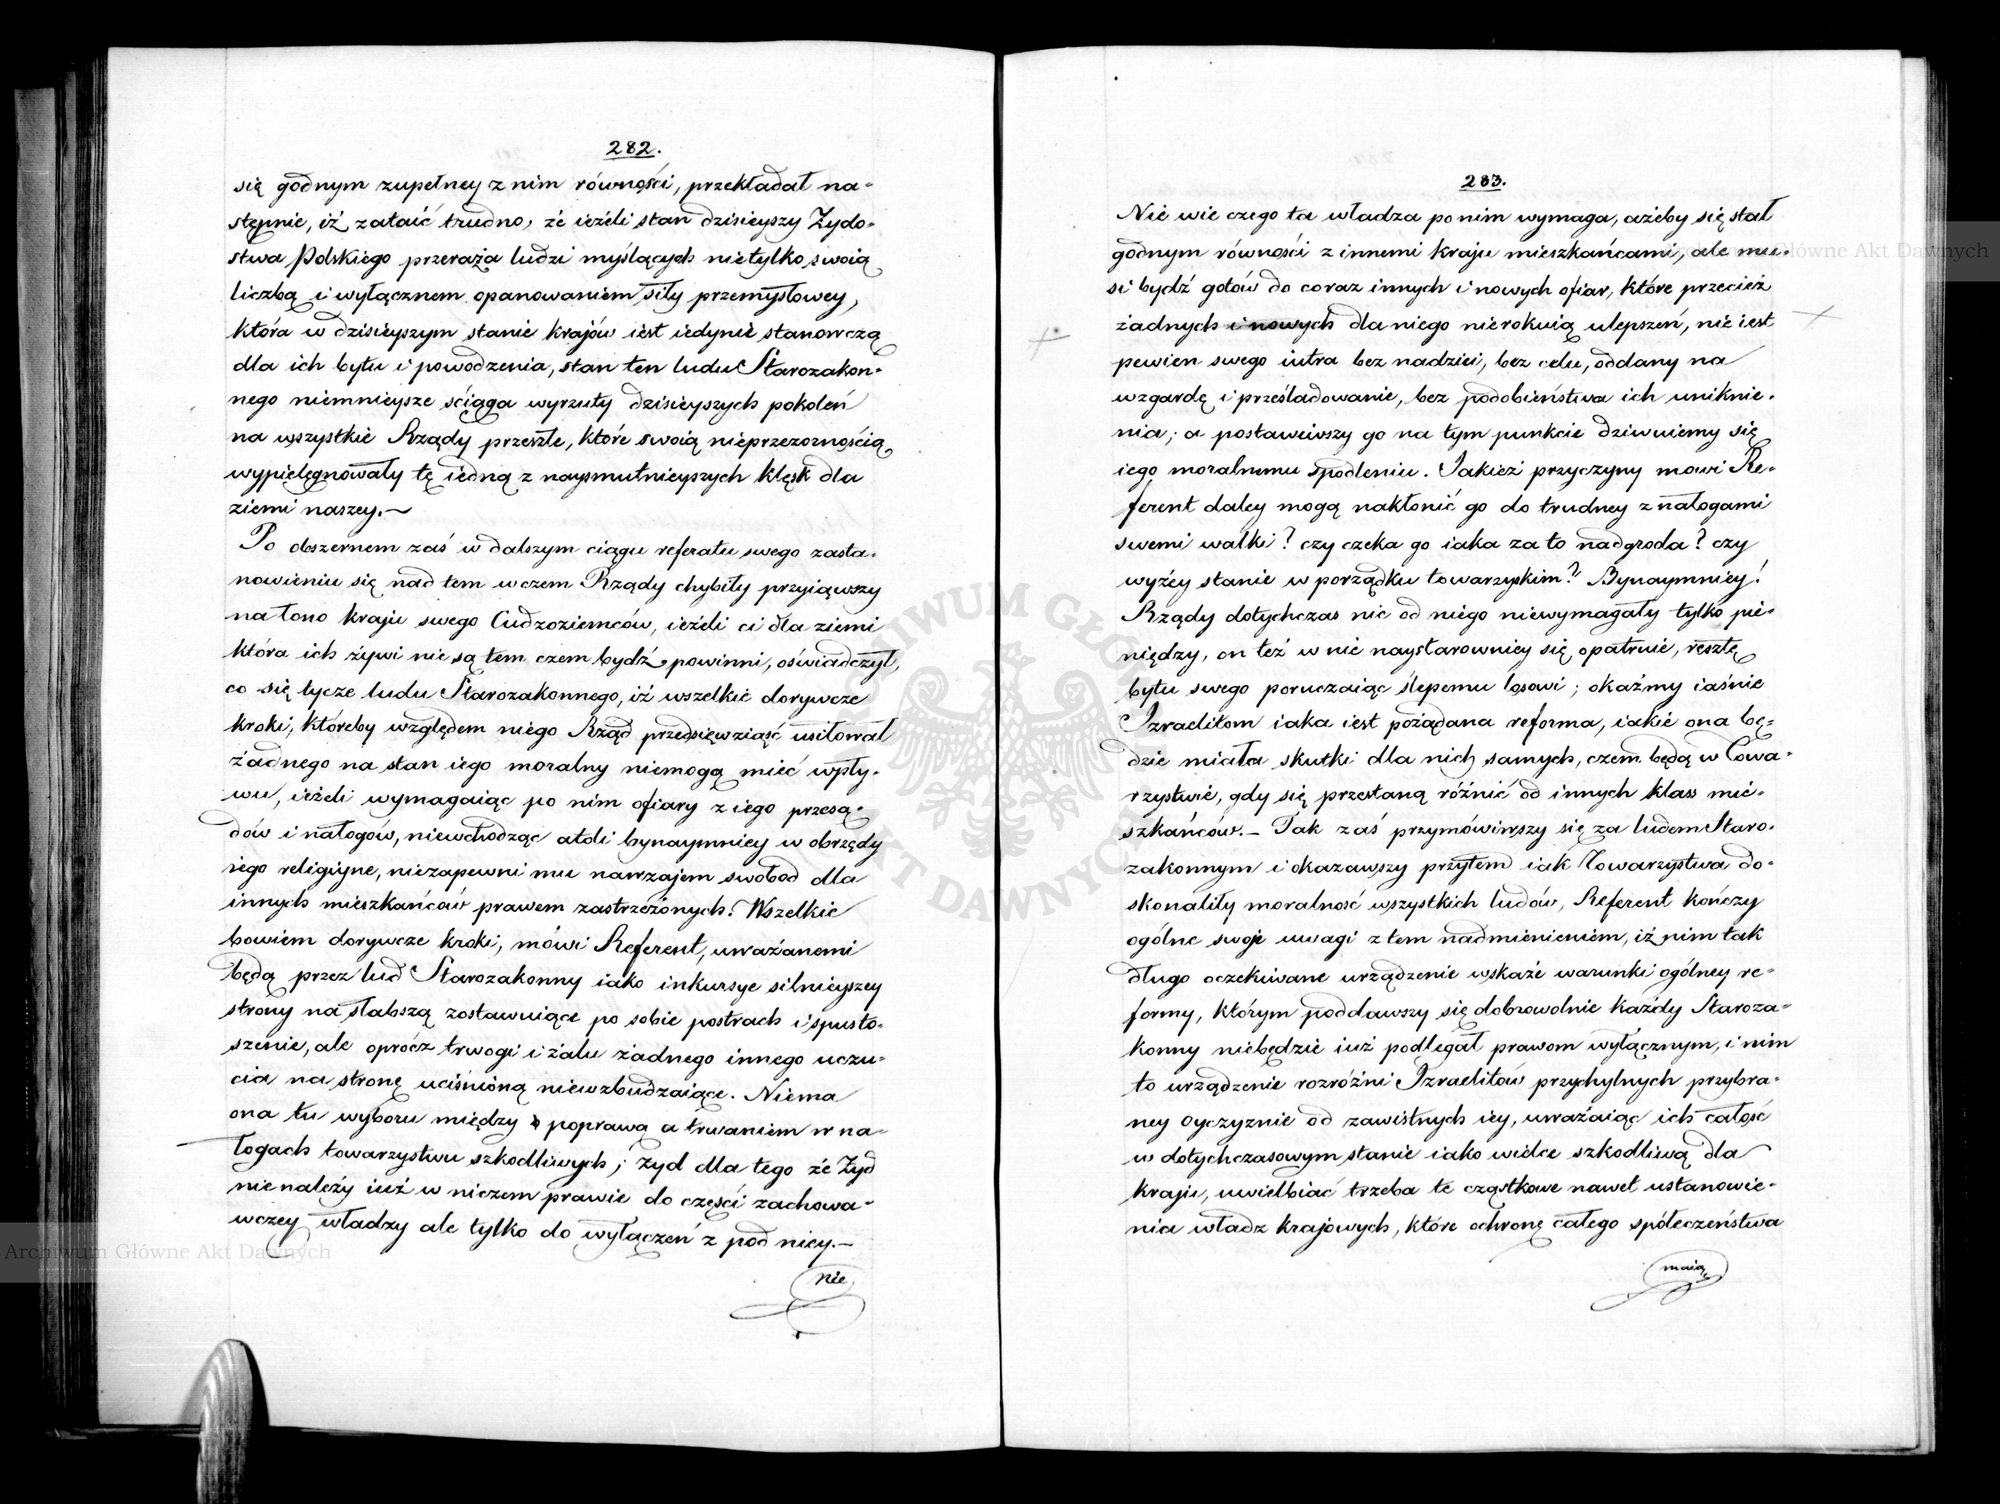 282.
się godnym zupełney z nim równości, przekładał na-
stępnie, iż zataić trudno, że ieżeli stan dzisieyszy Żydo-
stwa Polskiego przeraża ludzi myślących nietylko swoią
liczbą i wyłącznem opanowaniem siły przemysłowey,
która w dzisieyszym stanie krajów iest iedynie stanowczą
dla ich bytu i powodzenia, stan ten ludu Starozakon-
nego niemnieysze ściąga wyrzuty dzisieyszych pokoleń
na wszystkie Rządy przeszłe, które swoią nieprzezornością
wypielęgnowały tę iedną z naysmutnieyszych klęsk dla
ziemi naszey.—
Po obszernem zaś w dalszym ciągu referatu swego zasta-
nowieniu się nad tem w czem Rządy chybiły przyiąwszy
na łono kraju swego Cudzoziemców, ieżeli ci dla ziemi
która ich żywi nie są tem czem bydź powinni, oświadczył,
co się tycze ludu Starozakonnego, iż wszelkie dorywcze
kroki, któreby względem niego Rząd przedsięwziąść usiłował
żadnego na stan iego moralny niemogą mieć wpły-
wu, ieżeli wymagaiąc po nim ofiary z iego przesą-
dów i nałogów, niewchodząc atoli bynaymniey w obrzędy
iego religijne, niezapewni mu nawzajem swobod dla
innych mieszkańców prawem zastrzeżonych. Wszelkie
bowiem dorywcze kroki, mówi Referent, uważanemi
będą przez lud Starozakonny iako inkursye silnieyszey
strony na słabszą zostawuiące po sobie postrach i spusto-
szenie, ale oprócz trwogi i żalu żadnego innego uczu-
cia na stronę uciśnioną niewzbudzaiące. Niema
ona tu wyboru między poprawą a trwaniem w na-
łogach towarzystwu szkodliwych; Żyd dla tego że Żyd
nie należy iuż w niczem prawie do części zachowa-
wczey władzy ale tylko do wyłączeń z pod niey.—
nie
283.
Nie wie czego ta władza po nim wymaga, ażeby się stał
godnym równości z innemi kraju mieszkańcami, ale mu-
si bydź gotów do coraz innych i nowych ofiar, które przecież
żadnych i nowych dla niego nierokuią ulepszeń, nie iest
pewien swego iutra bez nadziei, bez celu, oddany na
wzgardę i prześladowanie, bez podobieństwa ich uniknie-
nia; a postawiwszy go na tym punkcie dziwuiemy się
iego moralnemu spodleniu. Jakież przyczyny mowi Re-
ferent daley mogą nakłonić go do trudney z nałogami
swemi walki? czy czeka go iaka za to nadgroda? czy
wyżey stanie w porządku towarzyskim? Bynaymniey!
Rządy dotychczas nic od niego niewymagały tylko pie-
niędzy, on też w nie naystarowniey się opatruie, resztę
bytu swego poruczaiąc ślepemu losowi; okażmy iaśnie
Izraelitom iaka iest pożądana reforma, iakie ona bę-
dzie miała skutki dla nich samych, czem będą w Towa-
rzystwie, gdy się przestaną różnić od innych klass mie-
szkańców.— Tak zaś przymówiwszy się za ludem Staro-
zakonnym i okazawszy przytem iak Towarzystwa do-
skonaliły moralność wszystkich ludów, Referent kończy
ogólne swoje uwagi z tem nadmienieniem, iż nim tak
długo oczekiwane urządzenie wskaże warunki ogólney re-
formy, którym poddawszy się dobrowolnie każdy Staroza-
konny niebędzie iuż podlegał prawom wyłącznym, i nim
to urządzenie rozróżni Izraelitów przychylnych przybra-
ney Oyczyznie od zawistnych iey, uważaiąc ich całość
w dotychczasowym stanie iako wielce szkodliwą dla
kraju, uwielbiać trzeba te cząstkowe nawet ustanowie-
nia władz krajowych, które ochronę całego społeczeństwa
maiąc
Archiwum Główne Akt Dawnych
Główne Akt Dawnych